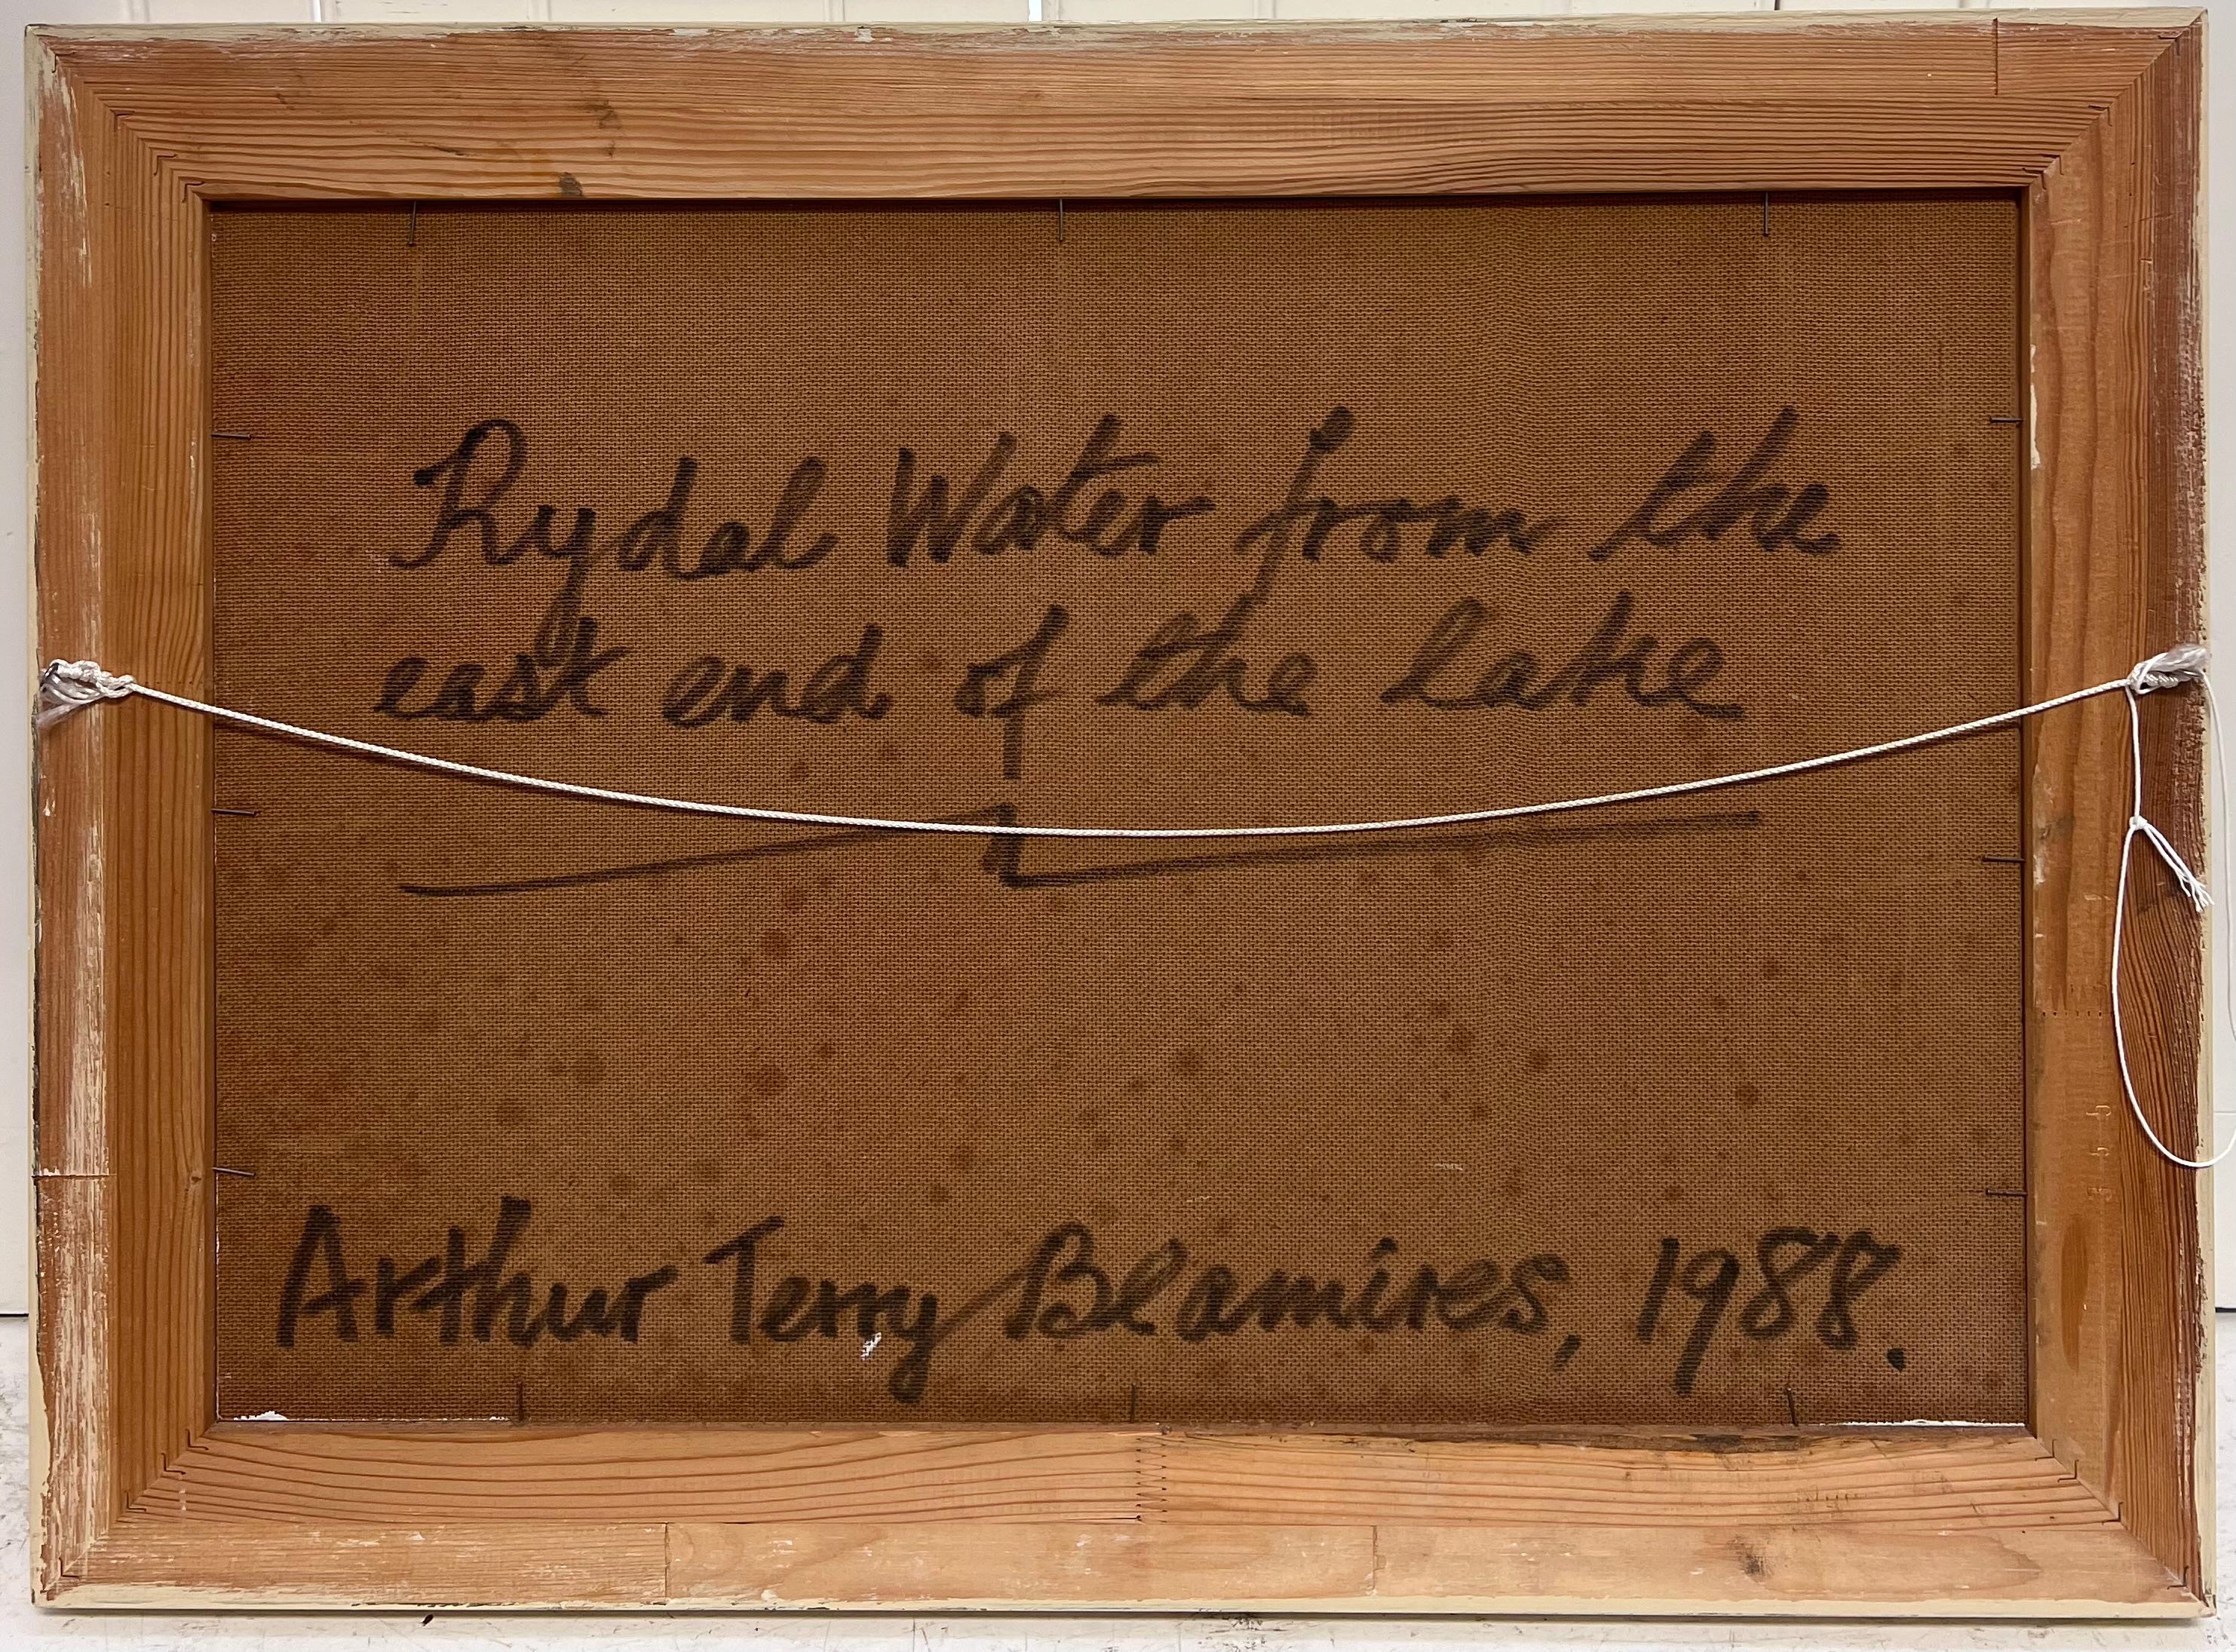 Rydal Water from the
east end of the lake
Arthur Terry Blamires, 1988.